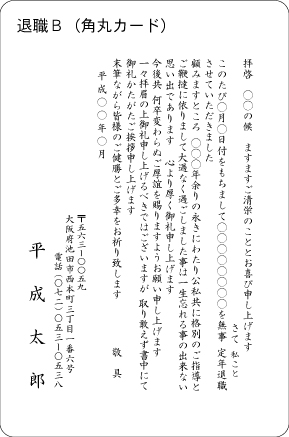 退職Ｂ（角丸カード）
拝啓　○○の候　ますますご清栄のこととお喜び申し上げます
さて 私こと
このたび○月○日付をもちまして○○○○○○○○を無事 定年退職
させていただきました
顧みますところ ○○○年余りの永きにわたり公私共に格別のご指導と
ご鞭撻に依りまして大過なく過ごしました事は一生忘れる事の出来ない
思い出であります　心より厚く御礼申し上げます
今後共 何卒変わらぬご厚誼を賜りますようお願い申し上げます
一々拝眉の上御礼申し上げるべきではございますが 取り敢えず書中にて
御礼かたがたご挨拶申し上げます
末筆ながら皆様のご健勝とご多幸をお祈り致します
敬　具
平成○○年○月
〒五六三ー〇〇五九
大阪府池田市西本町三丁目一番六号
電話（〇七二）〇五三ー〇五三八
平成太郎